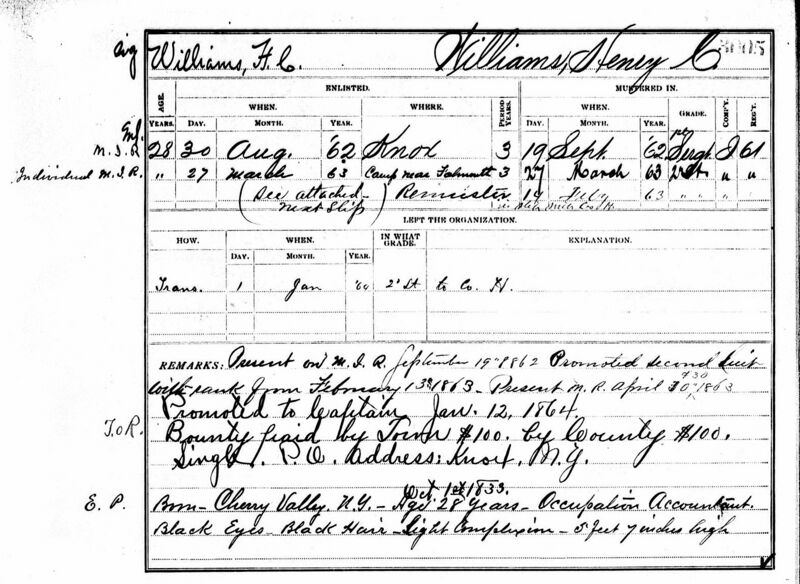 sig Williams, H. C. Williams, Henry C
AGE. ENLISTED. MUSTERED IN.
YEARS. WHEN. WHERE. PERIOD YEARS. WHEN. GRADE. COMP'Y. REG'T.
DAY. MONTH. YEAR. DAY. MONTH. YEAR.
Enl.
M. I. R. 28 30 Aug. '62 Knox 3 19 Sept. '62 1st Sergt 61
Individual M. I. R. " 27 March 63 Camp near Falmouth 3 27 March 63 2" Lt " "
(See attached next Slip) Remuster 63 " " "
LEFT THE ORGANIZATION.
HOW. WHEN. IN WHAT GRADE. EXPLANATION.
DAY. MONTH. YEAR.
Trans. 1 Jan '64 2" Lt to Co. H.
REMARKS: Present on M. I. R. September 19" 1862 Promoted second Lieut
with rank from February 1863 - Present M. R. April 1863
Promoted to Captain Jan. 12, 1864.
T. of R. Bounty paid by Town $100. by County $100.
Single. P. O. Address: Knox, N.Y.
Oct. 1st 1833.
E. P. Born - Cherry Valley N.Y. - Aged 28 Years - Occupation Accountant.
Black Eyes - Black Hair - Light Complexion - 5 feet 7 inches high